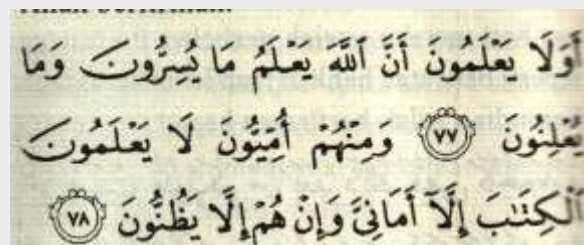 أَوَلَا يَعْلَمُونَ أَنَّ ٱللَّهَ يَعْلَمُ مَا يُسِرُّونَ وَمَا
يُعْلِنُونَ ٧٧ وَمِنْهُمْ أُمِّيُّونَ لَا يَعْلَمُونَ
ٱلْكِتَٰبَ إِلَّآ أَمَانِيَّ وَإِنْ هُمْ إِلَّا يَظُنُّونَ ٧٨